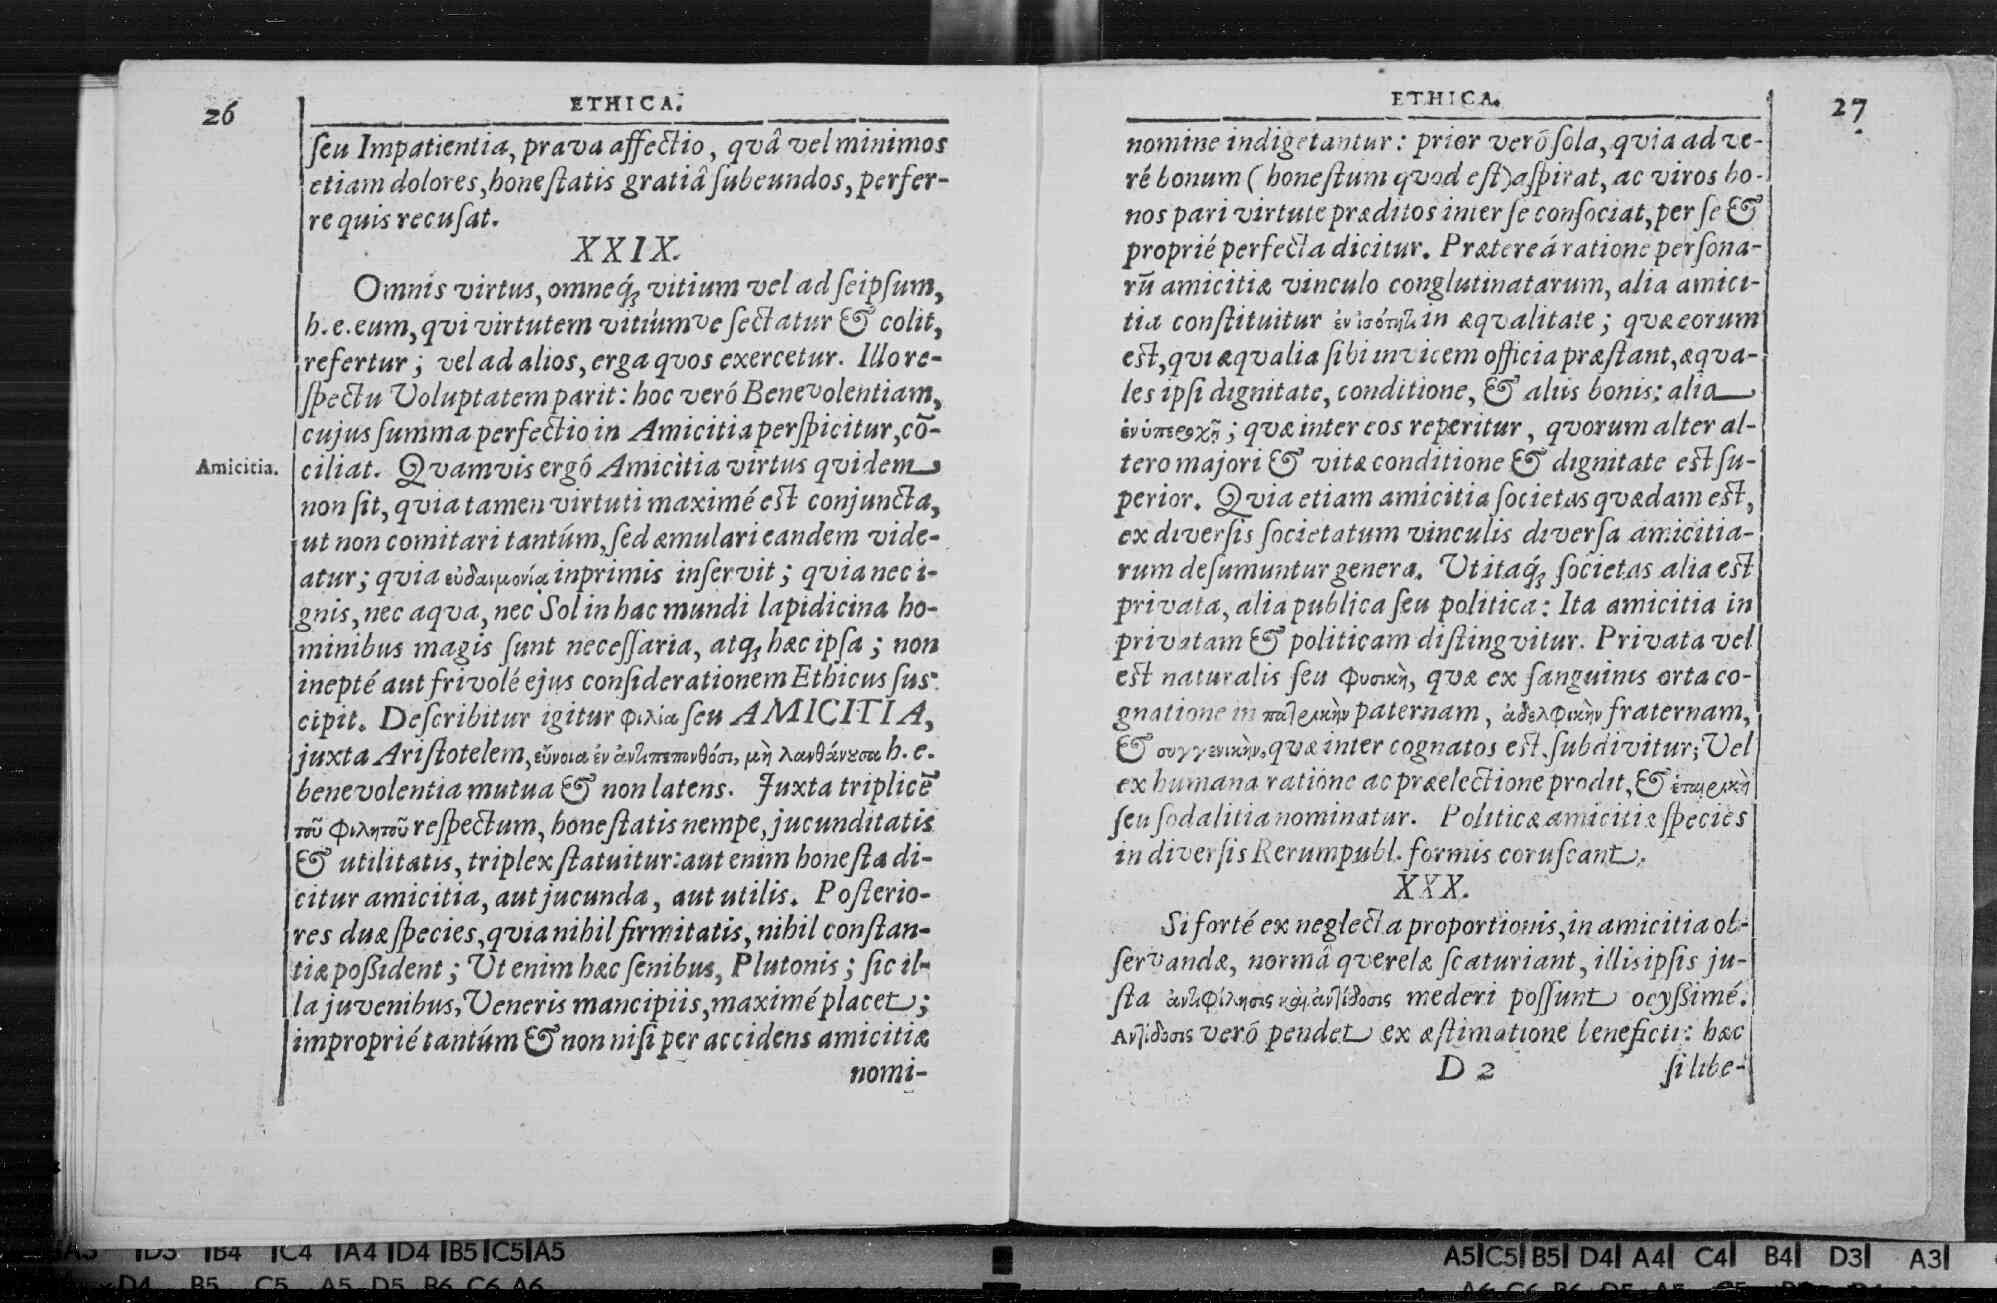 26
ETHICA.
ſeu Impatientia, prava affectio, qvâ vel minimos
etiam dolores, honeſtatis gratiâ ſubeundos, perfer-
re quis recuſat.
XXIX.
Omnis virtus, omneq́; vitium vel ad ſeipſum,
h. e. eum, qvi virtutem vitiúmve ſectatur & colit,
refertur; vel ad alios, erga qvos exercetur. Illo re-
ſpectu Voluptatem parit: hoc veró Benevolentiam,
cujus ſumma perfectio in Amicitia perſpicitur, cõ-
Amicitia.
ciliat. Qvamvis ergó Amicitia virtus qvidem
non ſit, qvia tamen virtuti maximé est conjuncta,
ut non comitari tantúm, ſed æmulari eandem vide-
atur; qvia εὐδαιμονίᾳ inprimis inſervit; qvia nec i-
gnis, nec aqva, nec Sol in hac mundi lapidicina ho-
minibus magis ſunt neceſſaria, atq; hæc ipſa; non
inepté aut frivolé ejus conſiderationem Ethicus ſus-
cipit. Deſcribitur igitur φιλία ſeu AMICITIA,
juxta Ariſtotelem, εὔνοια ἐν ἀντιπεπονθόσι, μὴ λανθάνουσα h. e.
benevolentia mutua & non latens. Juxta triplicẽ
τοῦ φιλητοῦ reſpectum, honeſtatis nempe, jucunditatis
& utilitatis, triplex ſtatuitur: aut enim honeſta di-
citur amicitia, aut jucunda, aut utilis. Poſterio-
res duæ ſpecies, qvia nihil firmitatis, nihil conſtan-
tiæ poßident; Ut enim hæc ſenibus, Plutonis; ſic il-
la juvenibus, Veneris mancipiis, maximé placet;
improprié tantúm & non niſi per accidens amicitiæ
nomi-
27
ETHICA.
nomine indigetantur: prior veró ſola, qvia ad ve-
ré bonum (honeſtum qvod eſt) aſpirat, ac viros bo-
nos pari virtute præditos inter ſe conſociat, per ſe &
proprié perfecta dicitur. Prætereá ratione perſona-
rũ amicitiæ vinculo conglutinatarum, alia amici-
tia conſtituitur ἐν ἰσότητι in æqvalitate; qvæ eorum
est, qvi æqvalia ſibi invicem officia præſtant, æqva-
les ipſi dignitate, conditione, & aliis bonis; alia
ἐν ὑπεροχῇ; qvæ inter eos reperitur, qvorum alter al-
tero majori & vitæ conditione & dignitate est ſu-
perior. Qvia etiam amicitia ſocietas qvædam est,
ex diverſis ſocietatum vinculis diverſa amicitia-
rum deſumuntur genera. Ut itaq́; ſocietas alia est
privata, alia publica ſeu politica: Ita amicitia in
privatam & politicam diſtingvitur. Privata vel
est naturalis ſeu φυσικὴ, qvæ ex ſanguinis orta co-
gnatione in πατρικὴν paternam, ἀδελφικὴν fraternam,
& συγγενικὴν, qvæ inter cognatos est, ſubdivitur; Vel
ex humana ratione ac præelectione prodit, & ἑταιρικὴ
ſeu ſodalitia nominatur. Politicæ amicitiæ ſpecies
in diverſis Rerumpubl. formis coruſcant.
XXX.
Si forté ex neglecta proportionis, in amicitia ob-
ſervandæ, normâ qverelæ ſcaturiant, illis ipſis ju-
ſta ἀντιφίλησις καὶ ἀντίδοσις mederi poſſunt ocyßimé.
Αντίδοσις veró pendet ex æſtimatione beneficii: hæc
D 2
ſi libe-
A3 D3 B4 C4 A4 D4 B5 C5 A5
D4 B5 C5 A5 D5 B6 C6 A6
A5 C5 B5 D4 A4 C4 B4 D3 A3
A6 C6 B6 D5 A5 C5